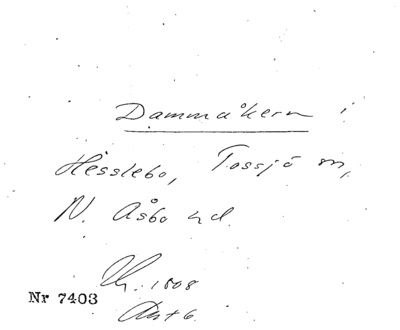 Dammåkern
Hesslebo, Tossjö sn,
N. Åsbo hd.
1808
Nr 7403